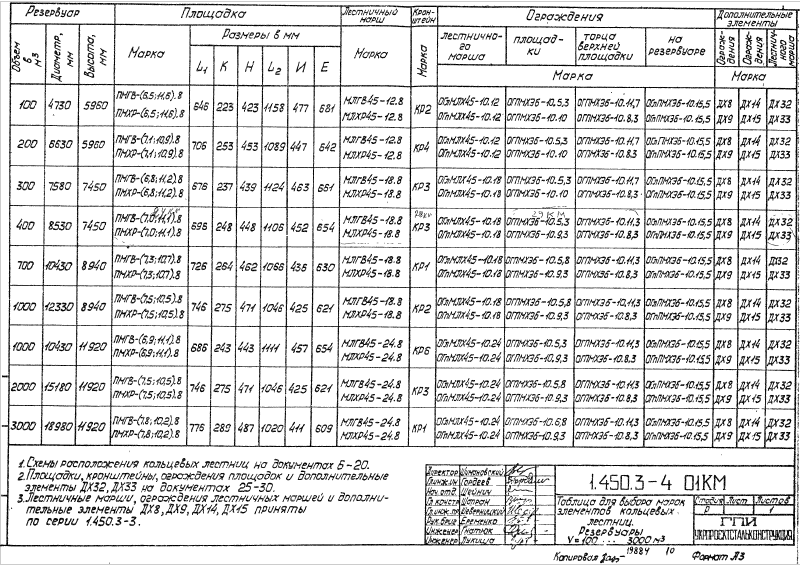 Резервуар Площадка Лестничный марш Кронштейн Ограждения Дополнительные элементы
Объем в м3 Диаметр, мм Высота, мм Марка Размеры в мм Марка Марка лестничного марша площадки торца верхней площадки на резервуаре Ограждения Ограждения Лестничного марша
L1 К Н L2 И Е Марка Марка
100 4730 5960 ПМГВ-(6,5;11,6).8 646 223 423 1158 477 681 МЛГВ45-12.8 КР2 ОГлМЛХ45-10.12 ОГПМХЭб-10.5,3 ОГПМХЭб-10.11,7 ОГлПМХЭб-10.15,5 ДХ8 ДХ14 ДХ32
ПМХР-(6,5;11,6).8 МЛХР45-12.8 ОГпМЛХ45-10.12 ОГПМХЭб-10.10 ОГПМХЭб-10.8,3 ОГпПМХЭб-10.15,5 ДХ9 ДХ15 ДХ33
200 6630 5960 ПМГВ-(7,1;10,9).8 706 253 453 1089 447 642 МЛГВ45-12.8 КР4 ОГлМЛХ45-10.12 ОГПМХЭб-10.5,3 ОГПМХЭб-10.11,7 ОГлПМХЭб-10.15,5 ДХ8 ДХ14 ДХ32
ПМХР-(7,1;10,9).8 МЛХР45-12.8 ОГпМЛХ45-10.12 ОГПМХЭб-10.10 ОГПМХЭб-10.8,3 ОГпПМХЭб-10.15,5 ДХ9 ДХ15 ДХ33
300 7580 7450 ПМГВ-(6,8;11,2).8 676 237 439 1124 463 661 МЛГВ45-18.8 КР3 ОГлМЛХ45-10.18 ОГПМХЭб-10.5,3 ОГПМХЭб-10.11,7 ОГлПМХЭб-10.15,5 ДХ8 ДХ14 ДХ32
ПМХР-(6,8;11,2).8 МЛХР45-18.8 ОГпМЛХ45-10.18 ОГПМХЭб-10.10 ОГПМХЭб-10.8,3 ОГпПМХЭб-10.15,5 ДХ9 ДХ15 ДХ33
29 КМ
400 8530 7450 ПМГВ-(7,0;11,1).8 696 248 448 1106 452 654 МЛГВ45-18.8 КР3 ОГлМЛХ45-10.18 ОГПМХЭб-10.5,3 ОГПМХЭб-10.11,3 ОГлПМХЭб-10.15,5 ДХ8 ДХ14 ДХ32
ПМХР-(7,0;11,1).8 МЛХР45-18.8 ОГпМЛХ45-10.18 ОГПМХЭб-10.9,3 ОГПМХЭб-10.8,3 ОГпПМХЭб-10.15,5 ДХ9 ДХ15 ДХ33
700 10430 8940 ПМГВ-(7,3;10,7).8 726 264 462 1066 436 630 МЛГВ45-18.8 КР1 ОГлМЛХ45-10.18 ОГПМХЭб-10.5,8 ОГПМХЭб-10.11,3 ОГлПМХЭб-10.15,5 ДХ8 ДХ14 ДХ32
ПМХР-(7,3;10,7).8 МЛХР45-18.8 ОГпМЛХ45-10.18 ОГПМХЭб-10.9,3 ОГПМХЭб-10.8,3 ОГпПМХЭб-10.15,5 ДХ9 ДХ15 ДХ33
1000 12330 8940 ПМГВ-(7,5;10,5).8 746 275 471 1046 425 621 МЛГВ45-18.8 КР2 ОГлМЛХ45-10.18 ОГПМХЭб-10.5,8 ОГПМХЭб-10.11,3 ОГлПМХЭб-10.15,5 ДХ8 ДХ14 ДХ32
ПМХР-(7,5;10,5).8 МЛХР45-18.8 ОГпМЛХ45-10.18 ОГПМХЭб-10.9,3 ОГПМХЭб-10.8,3 ОГпПМХЭб-10.15,5 ДХ9 ДХ15 ДХ33
1000 10430 11920 ПМГВ-(6,9;11,1).8 686 243 443 1111 457 654 МЛГВ45-24.8 КР6 ОГлМЛХ45-10.24 ОГПМХЭб-10.5,3 ОГПМХЭб-10.11,3 ОГлПМХЭб-10.15,5 ДХ8 ДХ14 ДХ32
ПМХР-(6,9;11,1).8 МЛХР45-24.8 ОГпМЛХ45-10.24 ОГПМХЭб-10.9,3 ОГПМХЭб-10.8,3 ОГпПМХЭб-10.15,5 ДХ9 ДХ15 ДХ33
2000 15180 11920 ПМГВ-(7,5;10,5).8 746 275 471 1046 425 621 МЛГВ45-24.8 КР3 ОГлМЛХ45-10.24 ОГПМХЭб-10.5,8 ОГПМХЭб-10.11,3 ОГлПМХЭб-10.15,5 ДХ8 ДХ14 ДХ32
ПМХР-(7,5;10,5).8 МЛХР45-24.8 ОГпМЛХ45-10.24 ОГПМХЭб-10.9,3 ОГПМХЭб-10.8,3 ОГпПМХЭб-10.15,5 ДХ9 ДХ15 ДХ33
3000 18980 11920 ПМГВ-(7,8;10,2).8 776 289 487 1020 411 609 МЛГВ45-24.8 КР1 ОГлМЛХ45-10.24 ОГПМХЭб-10.6,8 ОГПМХЭб-10.11,3 ОГлПМХЭб-10.15,5 ДХ8 ДХ14 ДХ32
ПМХР-(7,8;10,2).8 МЛХР45-24.8 ОГпМЛХ45-10.24 ОГПМХЭб-10.9,3 ОГПМХЭб-10.8,3 ОГпПМХЭб-10.15,5 ДХ9 ДХ15 ДХ33
1. Схемы расположения кольцевых лестниц на документах 5-20.
2. Площадки, кронштейны, ограждения площадок и дополнительные
элементы ДХ32, ДХ33 на документах 25-30.
3. Лестничные марши, ограждения лестничных маршей и дополни-
тельные элементы ДХ8, ДХ9, ДХ14, ДХ15 приняты
по серии 1.450.3-3.
Директор
Гл.инж.ин Гордеев
Нач.отд. Шейнич
Гл.констр. Шатран
Гл.инж.пр.
Рук.бриг. Еременко
Инженер Гнатюк
Инженер Лукиша
1.450.3-4 01КМ
Таблица для выбора марок
элементов кольцевых
лестниц.
Резервуары
V=100 ... 3000 м3
Стадия Лист Листов
Р 1
ГПИ
УКРПРОЕКТСТАЛЬКОНСТРУКЦИЯ
Копировал 19884 10 Формат А3